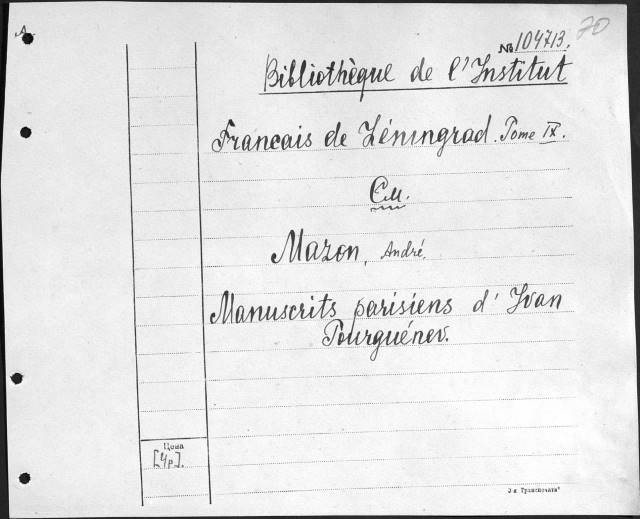 № 104713.
70
Bibliothèque de l'Institut
Français de Léningrad. Tome IX.
См.
Mazon, André.
Manuscrits parisiens d'Ivan
Tourguénev.
Цена
[4р].